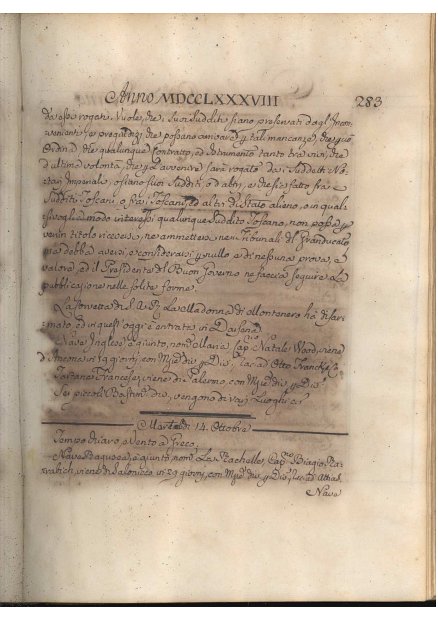 Anno MDCCLXXXVIII 283
da essi rogati. Vuole, che i suoi Sudditi siano preservati dagl'Incon-
venienti, e pregiudizj che possano arrivare p tali mancanze, che però
Ordina che qualunque Contratto, ed Istrumento tanto tra vivi, che
d'ultima volontà, che p l'avvenire sarà rogato da Suddetti No-
tari Imperiale, o siano suoi Sudditi, o d'altri, e che sia fatto fra
Sudditi Toscani, o fra Toscani, ed altri di Stato alieno, o in quali
sivoglia modo interessi qualunque Suddito Toscano, non possa p
verun titolo riceversi, ne ammettersi nei Tribunali del Granducato
ma debba aversi, e considerarsi p nullo, e di nessuna prova, e
valore, ed il Presidente del Buon Governo ne faccia seguire la
pubblicazione nelle solite forme.
La Corvetta di S.A.R. La Madonna di Montenero hà disar-
mato, ed in quest'oggi è entrata in Darsena
Nave Inglese è giunto, nom. Maria Capno Natale Wood, viene
d'Ancona in giorni, con Mercie div. p Div. racc. ad Otto Franck e C.
Tartane Francese, viene di Palermo, con Mercie div. p Div.
Sei piccoli Bastim. div. vengono di varj Luoghi &c
Martedì 14. Ottobre
Tempo chiaro, e Vento a Greco,
Nave Ragusea è giunta, nom. La Rachelle, Capno Biagio
viene di Salonicco in 29 giorni, con Mercie div. p Div. racc. ad Attias.
Nave